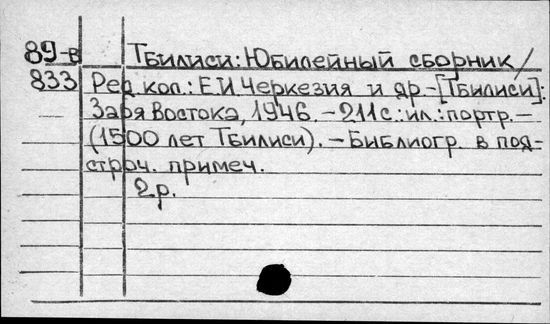 89-в Тбилиси: Юбилейный сборник/
833 Ред. кол.: Е.И. Черкезия и др.-[Тбилиси]:
Заря Востока, 1946. - 211с.: ил.: портр. -
(1500 лет Тбилиси). - Библиогр. в под-
строч. примеч.
2р.